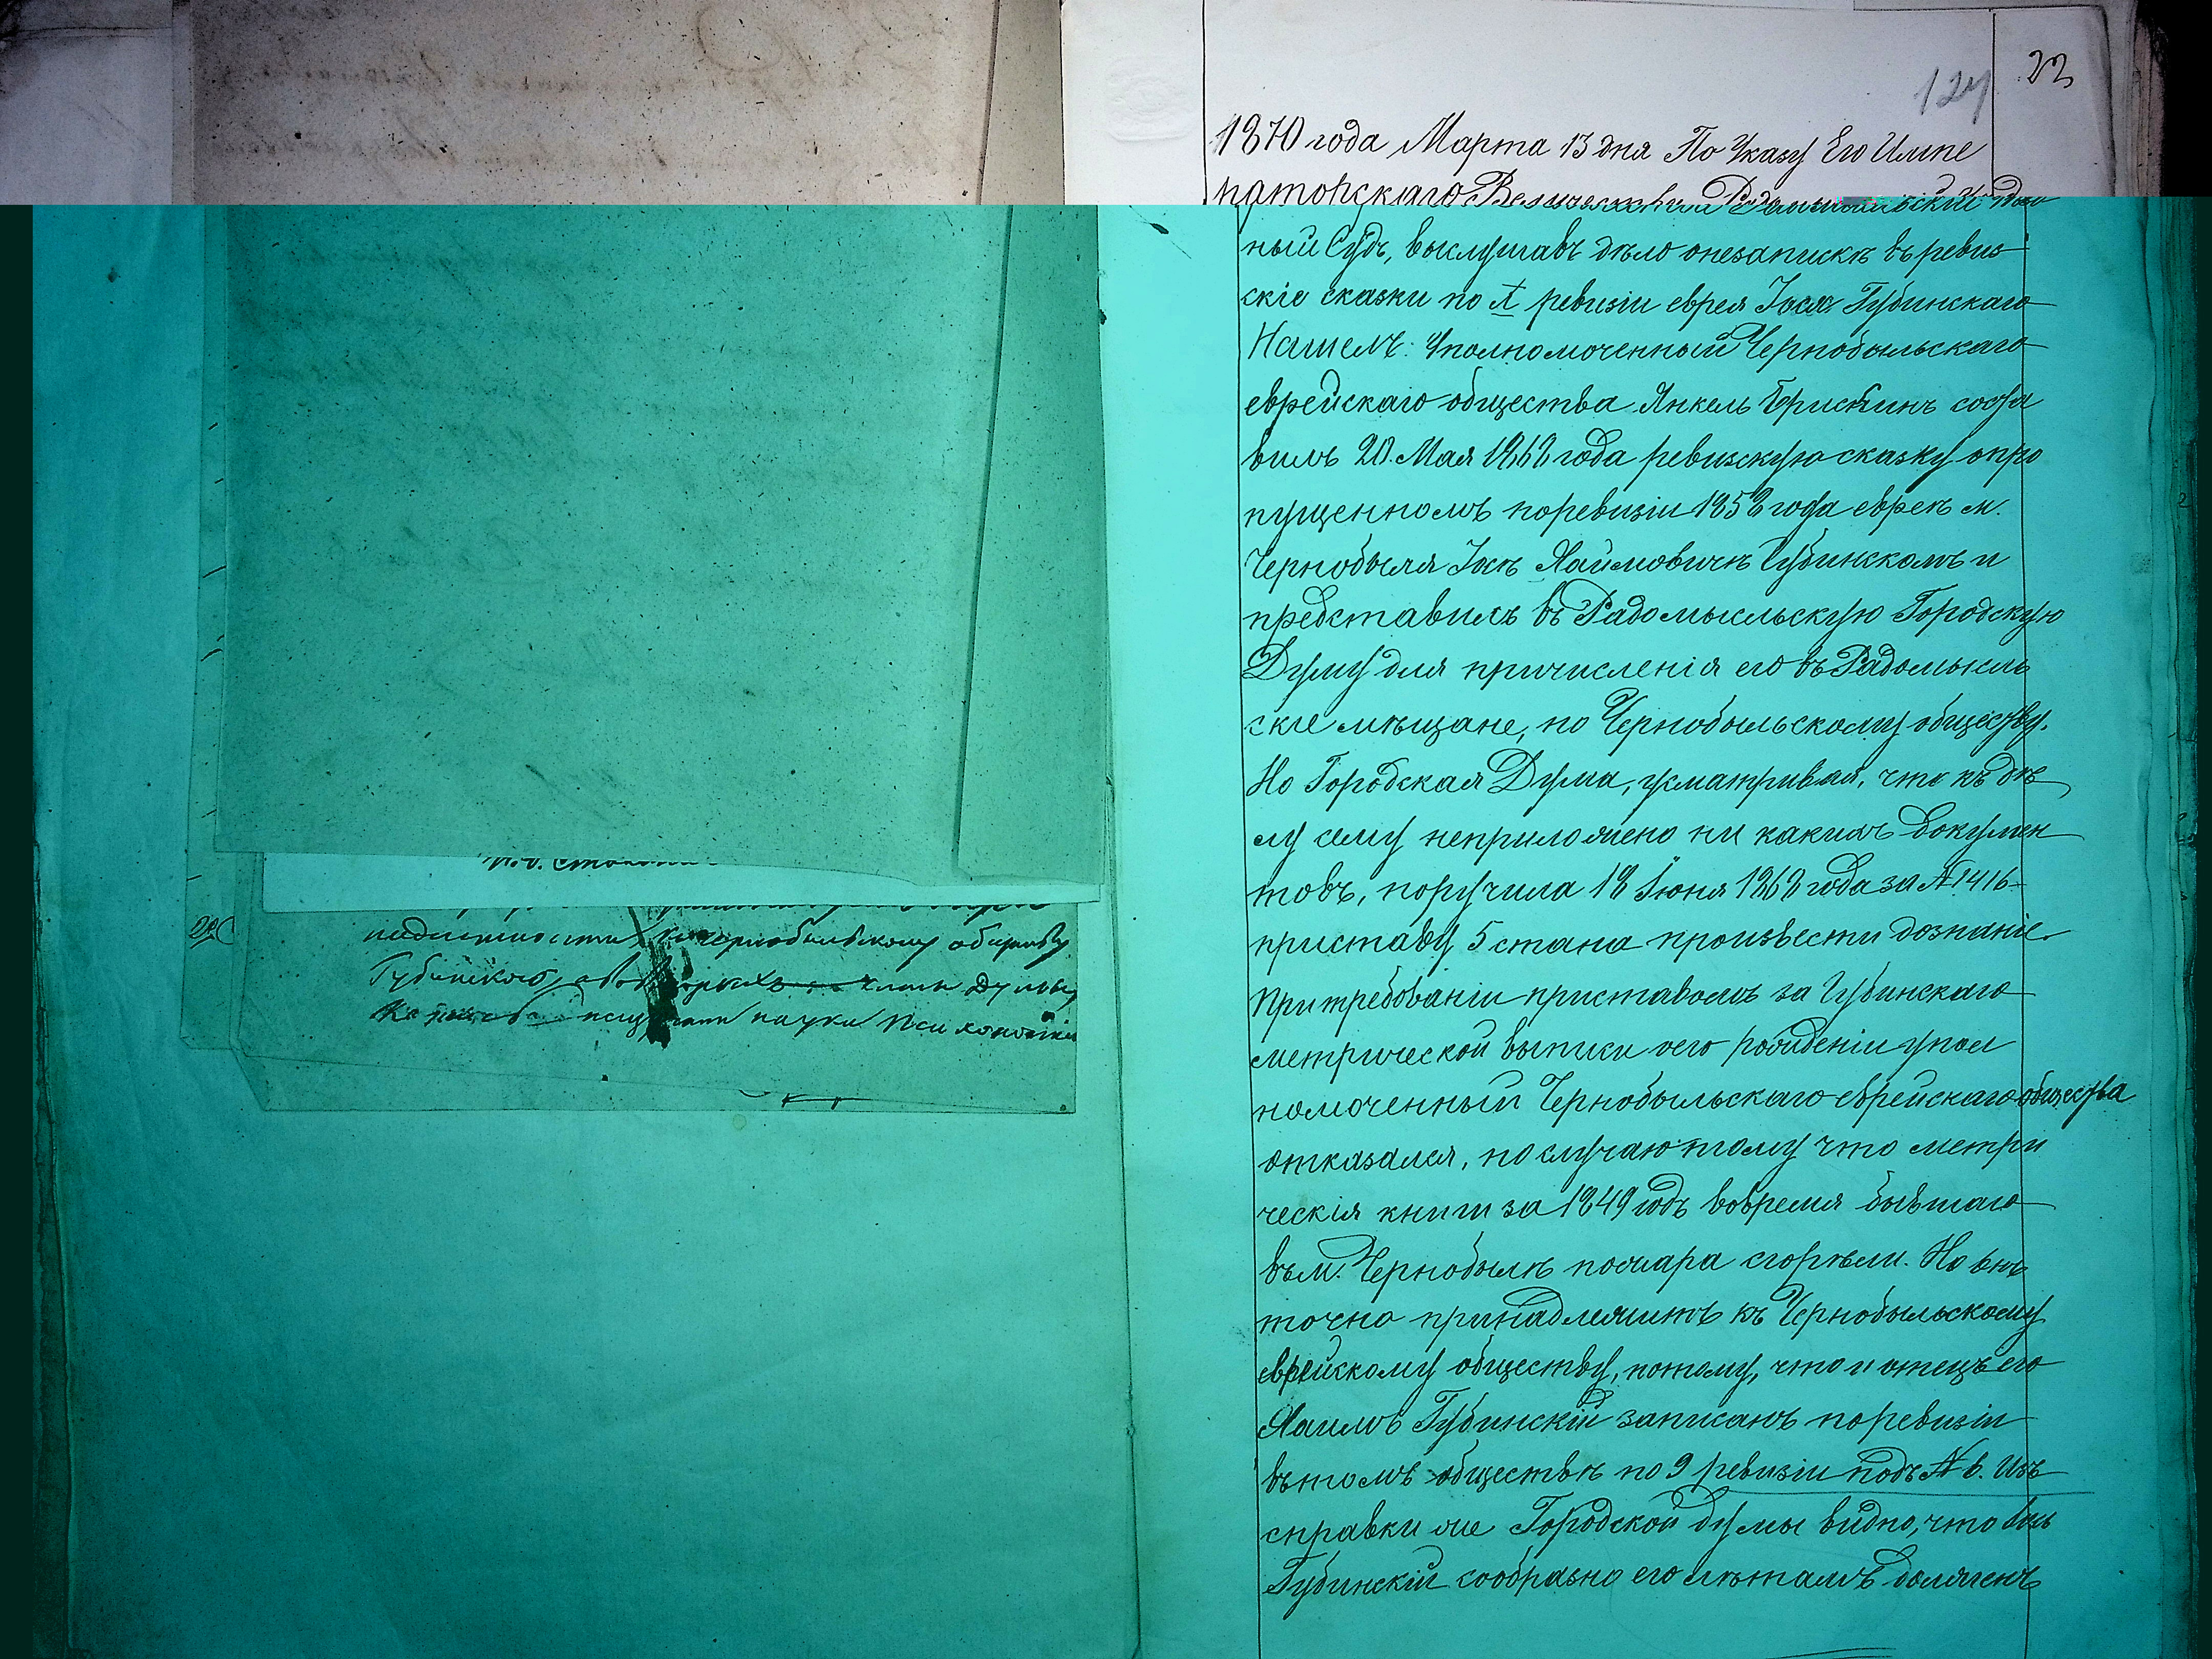 22
124
1870 года Марта 13 дня По Указу Его Импе
раторскаго Величества Радомысльскій Уѣзд
ный Судъ, выслушавъ дѣло онезапискѣ въ ревиз
скіе сказки по X ревизіи еврея Іося Губинскаго
Нашелъ: Уполномоченный Чернобыльскаго
еврейскаго общества Янкель соста
вилъ 20 Мая 1868 года ревизскую сказку опро
пущенномъ поревизіи 1858 года евреѣ м.
Чернобыля Іосѣ Хаимовичѣ Губинскомъ и
представилъ въ Радомысльскую Городскую
Думу для причисленія его въ Радомысль
скіе мѣщане, по Чернобыльскому обществу.
Но Городская Дума, усматривая, что къ дѣ
лу сему неприложено ни какихъ докумен
товъ, поручила 18 Іюня 1868 года за № 1416
приставу 5 стана произвести дознаніе.
При требованіи приставомъ за Губинскаго
метрической выписи оего рожденіи упол
номоченный Чернобыльскаго еврейскаго общества
отказался, по случаю тому что метри
ческія книги за 1849 годъ вовремя бывшаго
въ м. Чернобылѣ пожара сгорѣли. Но онъ
точно принадлежитъ къ Чернобыльскому
еврейскому обществу, потому, что и отецъ его
Хаимъ Губинскій записанъ поревизіи
въ томъ обществѣ по 9 ревизіи подъ № 6. Изъ
справки же Городской думы видно, что Іось
Губинскій сообразно его лѣтамъ долженъ
И.д.
Чернобыльскому обществу
Губинскаго, Думы